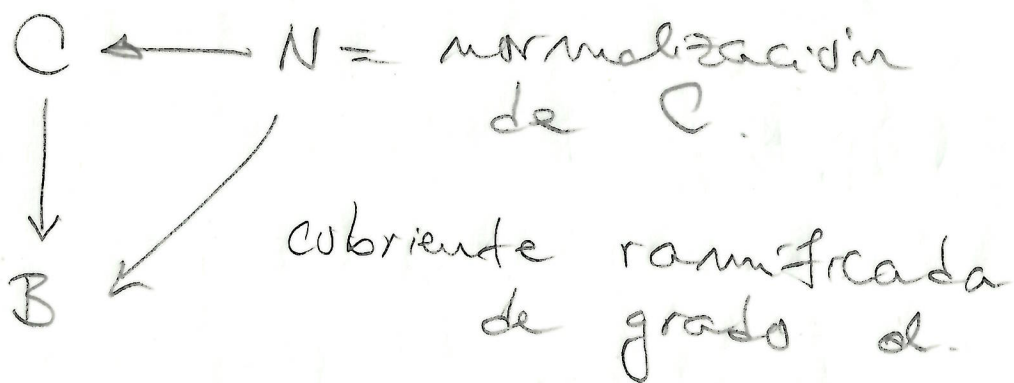 C ← N = normalización
de C.
cubriente ramificada
B de grado d.